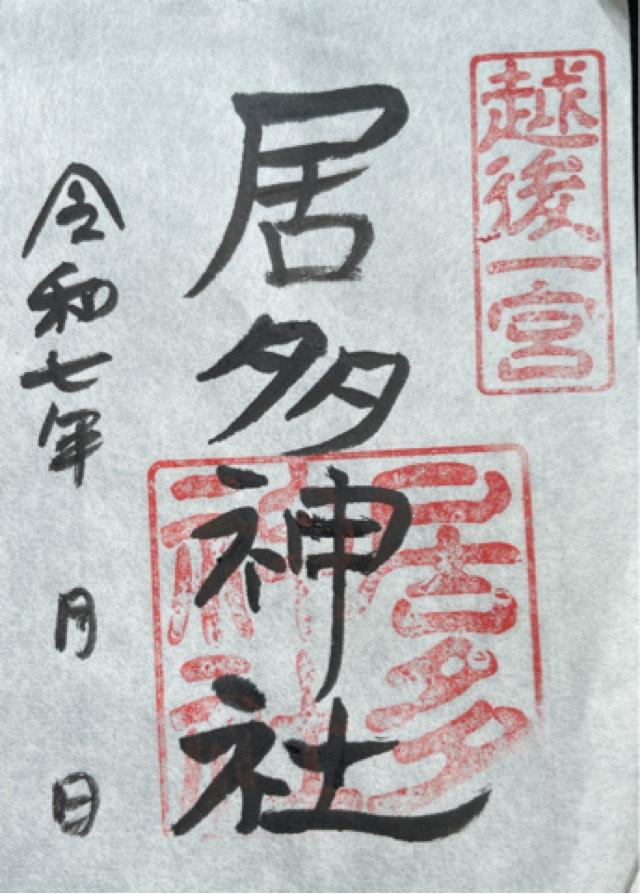 越後一宮
居多神社
居多神社
令和七年 月 日